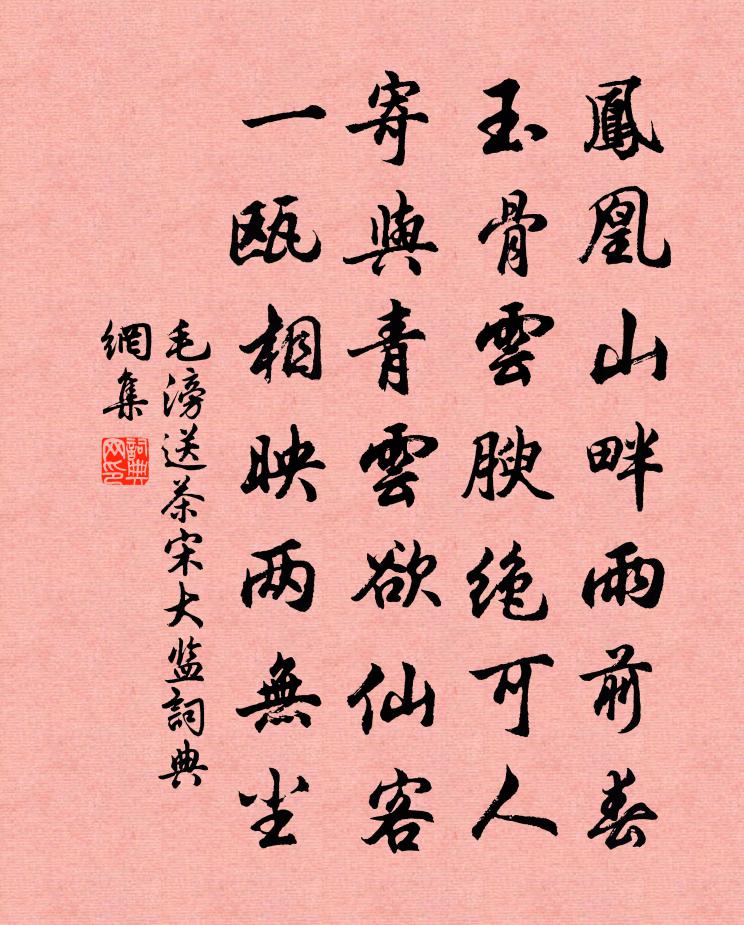 鳳凰山畔雨前春
玉骨雲腴絶可人
寄與青雲欲仙客
一甌相映两無尘
毛滂送茶宋大监詞典
網集
詞典
网印